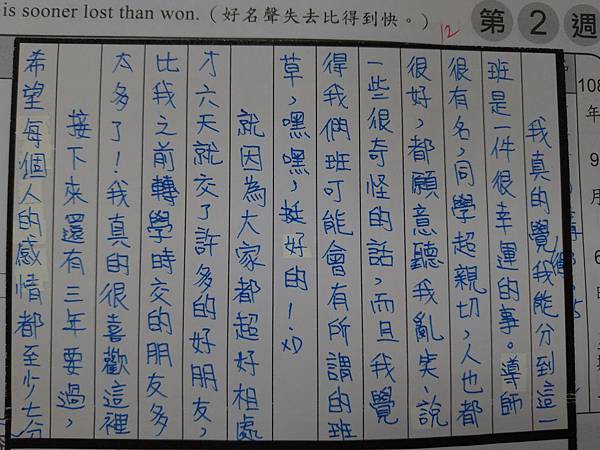 is sooner lost than won.(好名聲失去比得到快。)
12
第2週
108年9月6
我真的覺得我能分到這一
班是一件很幸運的事。導師
很有名,同學超親切,人也都
很好,都願意聽我亂笑、說
一些很奇怪的話,而且我覺
得我們班可能會有所謂的班
草,嘿嘿,挺好的!XD
就因為大家都超好相處
才六天就交了許多的好朋友,
比我之前轉學時交的朋友多
太多了!我真的很喜歡這裡
接下來還有三年要過,
希望每個人的感情都至少七分